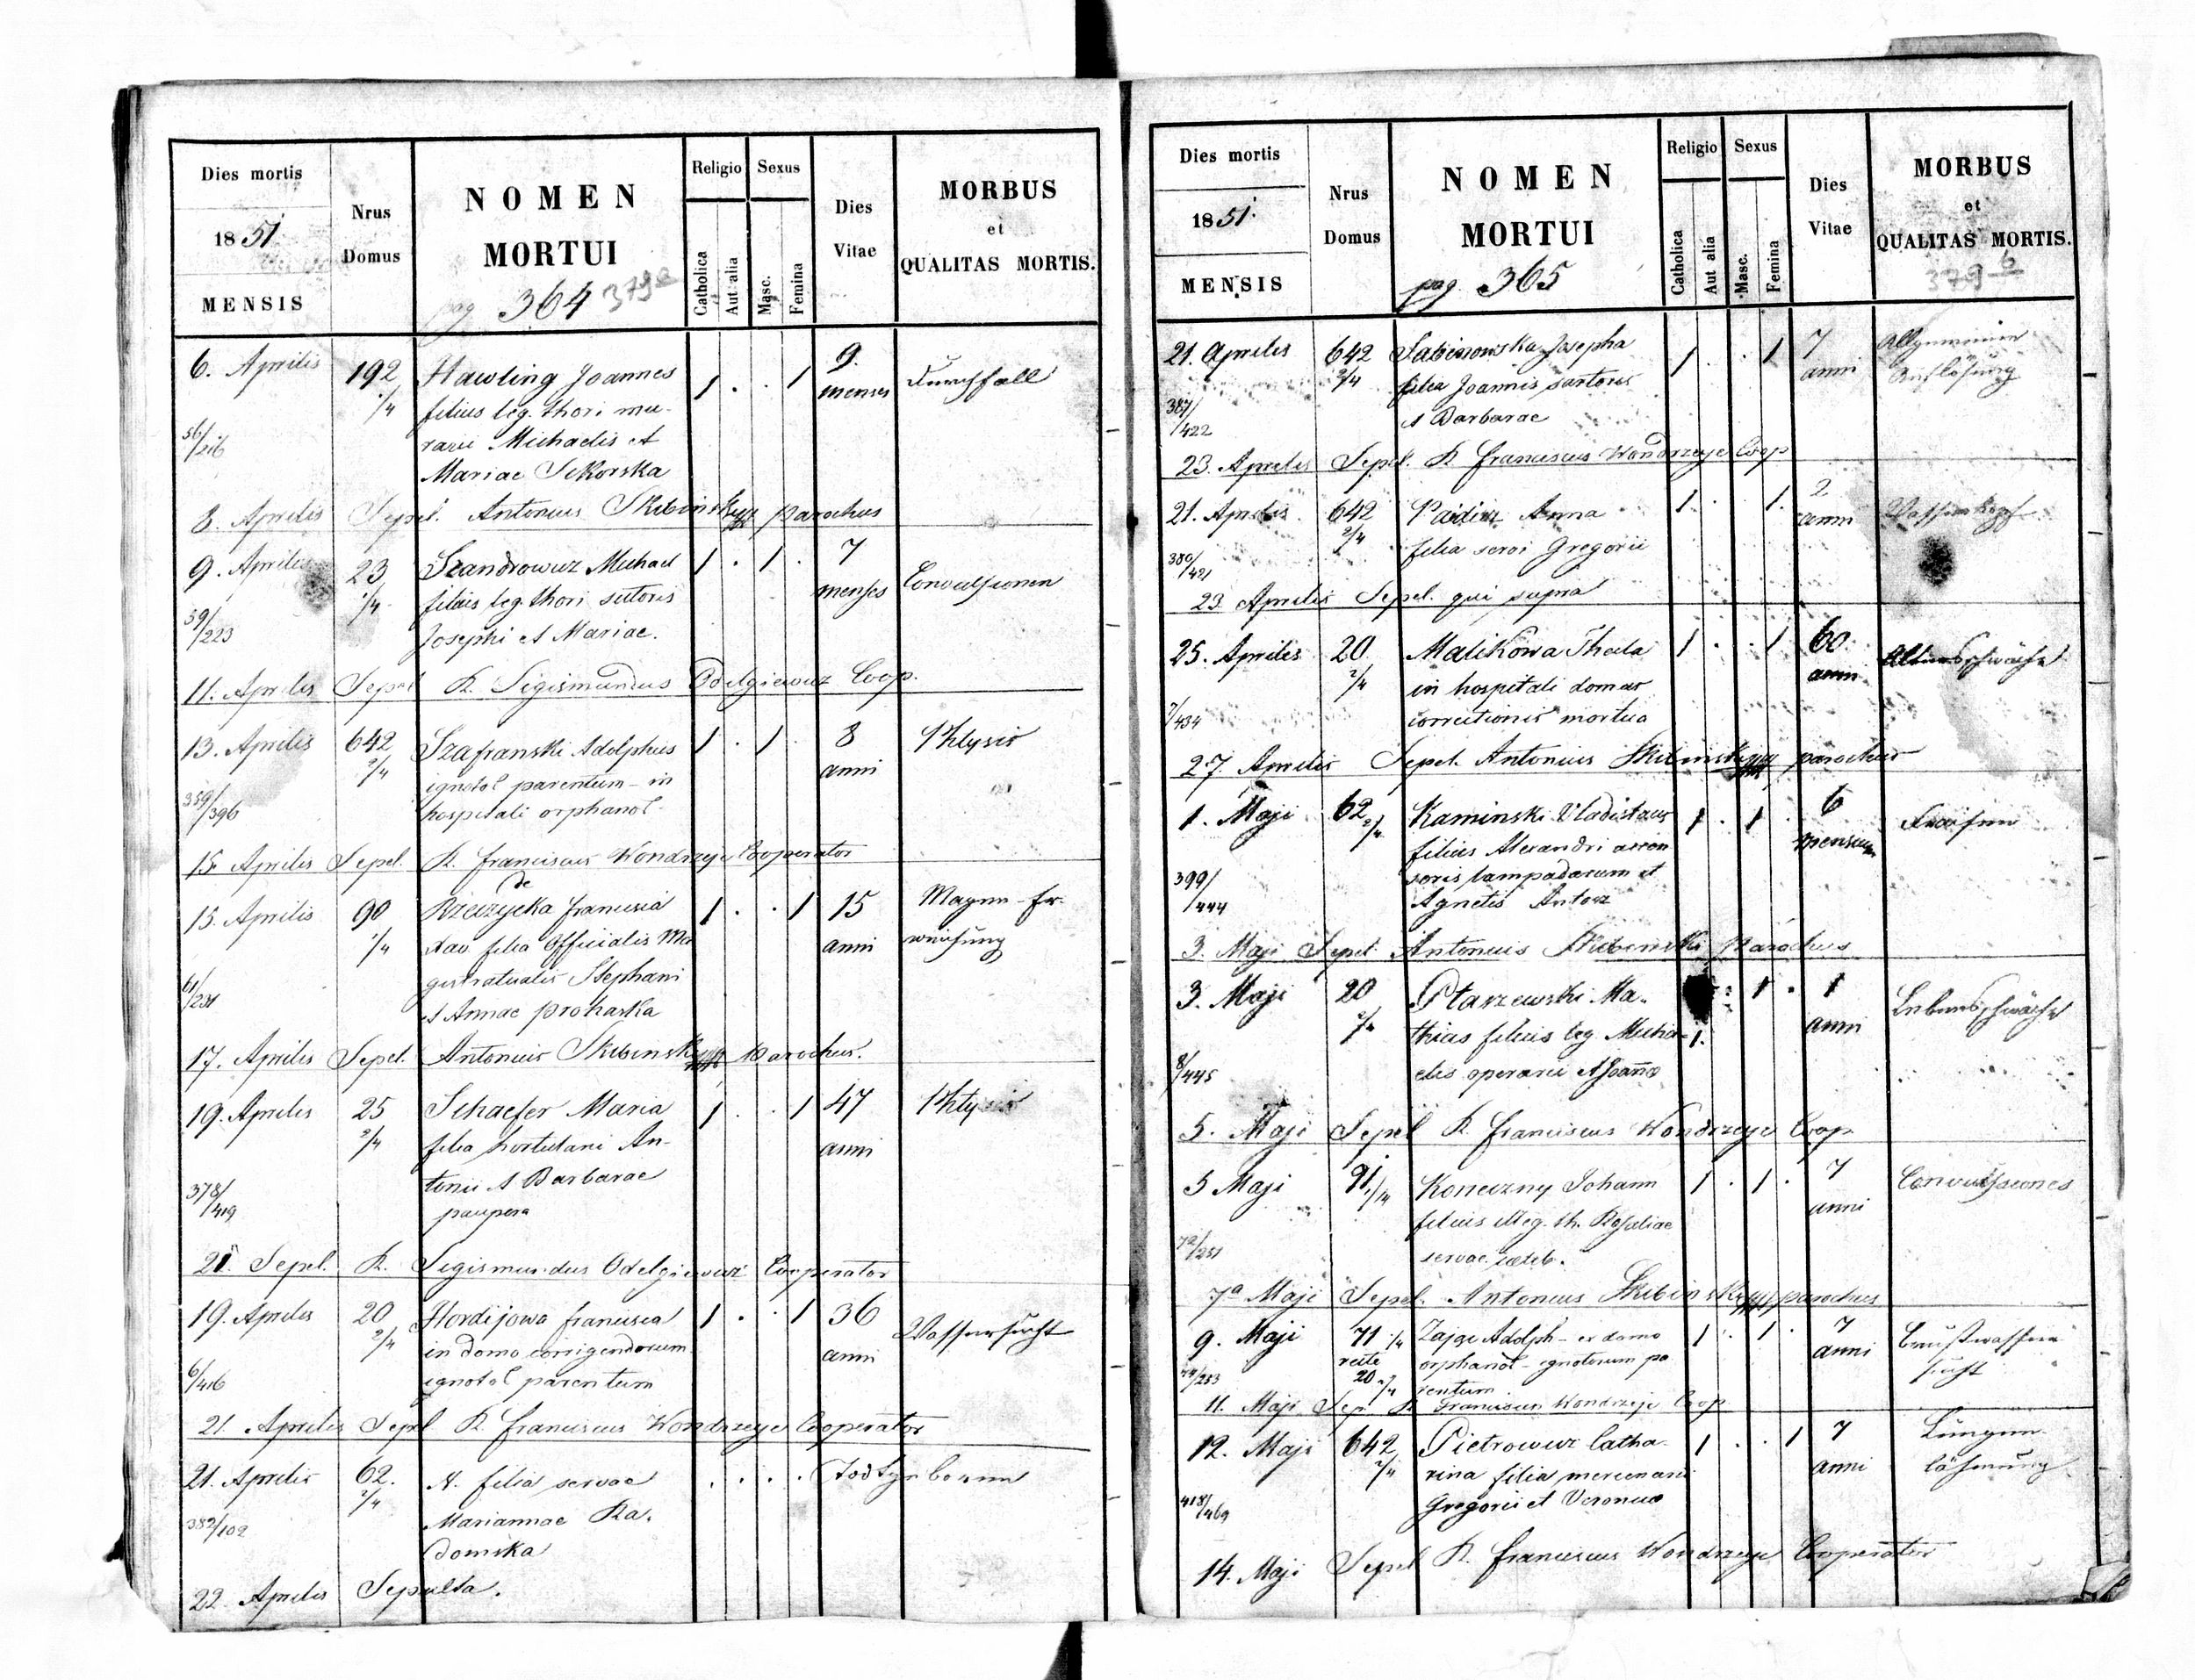 Dies mortis
1851.
MENSIS
Nrus
Domus
NOMEN
MORTUI
pag 364 379a
Religio
Catholica
Aut alia
Sexus
Masc.
Femina
Dies
Vitae
MORBUS
et
QUALITAS MORTIS.
6. Aprilis 192 Hawling Joannes 1 . . 1 9. Durchfall
1/4 filius leg. thori mu- menses
56/216 rarii Michaelis et
Mariae Sikorska
8. Aprilis Sepel. Antonius Skibinski parochus
9. Aprilis 23 Szandrowicz Michael 1 . 1 . 7 Convulsionen
1/4 filius leg. thori sutoris menses
59/223 Josephi et Mariae.
11. Aprilis Sepel R. Sigismundus Odelgiewicz Coop.
13. Aprilis 642 Szafranski Adolphus 1 . 1 . 8 Phtysis
2/4 ignotol parentum in anni
359/396 hospitali orphanol
15 Aprilis Sepel. R. Franciscus Wondrzeyc Cooperator
de
15. Aprilis 90 Rzeczycka Francisca 1 . . 1 15 Magen-Er-
1/4 filia Officialis Ma anni weichung
61/231 gistratualis Stephani
et Annae prohaska
17. Aprilis Sepel. Antonius Skibinski Parochus.
19. Aprilis 25 Schaefer Maria 1 . . 1 47 Phtysis
2/4 filia hortulani An- anni
378/419 tonii et Barbarae
paupera
21. Sepel. R. Sigismundus Odelgiewicz Cooperator
19. Aprilis 20 Hordijowa Francisca 1 . . 1 36 Wassersucht
2/4 in domo corrigendorum anni
6/416 ignotol parentum
21. Aprilis Sepel R. Franciscus Wondrzeyc Cooperator
21. Aprilis 62. N. filia servae . . . . Todtgeboren
2/4 Mariannae Ra-
382/102 domska
22. Aprilis Sepulta.
Dies mortis
1851.
MENSIS
Nrus
Domus
NOMEN
MORTUI
pag. 365
Religio
Catholica
Aut alia
Sexus
Masc.
Femina
Dies
Vitae
MORBUS
et
QUALITAS MORTIS.
379 b
21. Aprilis 642 Sabinowska Josepha 1 . . 1 7 Allgemeine
2/4 filia Joannis sartoris anni Auflösung
387/422 et Barbarae
23. Aprilis Sepel. R. Franciscus Wondrzeyc Coop
21. Aprilis 642 Anna 1 . . 1. 2 Wasserkopf
2/4 filia servi Gregorii anni
380/421
23. Aprilis Sepel. qui supra
25. Aprilis 20 Malikowa Thecla 1 . . 1 60 Altersschwäche
2/4 in hospitali domus anni
7/434 correctionis mortua
27. Aprilis Sepel. Antonius Skibinski parochus
1. Maji 62 2/4 Kaminski Vladislaus 1 . 1 . 6 Fraisen
filius Alexandri accen mensium
399/444 soris lampadarum et
Agnetis Antosz
3. Maji Sepel. Antonius Skibinski Parochus
3. Maji 20 Ptarzewski Ma- 1 . 1 Lebensschwäche
2/4 thias filius leg. Micha- 1. anni
8/445 elis operarii et Joannae
5. Maji Sepel R. Franciscus Wondrzeyc Coop
5 Maji 91 1/4 Koneczny Johann 1 . 1 . 7 Convulsiones
filius illeg. th. Rosaliae anni
72/251 servae caelib.
7a Maji Sepel. Antonius Skibinski parochus
9. Maji 71 1/4 Zajac Adolph - ex domo 1 . 1 . 7 Brustwasser
recte orphanol - ignotorum pa anni sucht
74/253 20 2/4 rentum
11. Maji Sep R Franciscus Wondrzeyc Coop
12. Maji 642 Pietrowicz Catha- 1 . . 1 7 Lungen-
2/4 rina filia mercenarii anni lähmung
418/469 Gregorii et Veronica
14. Maji Sepel R. Franciscus Wondrzeyc Cooperator